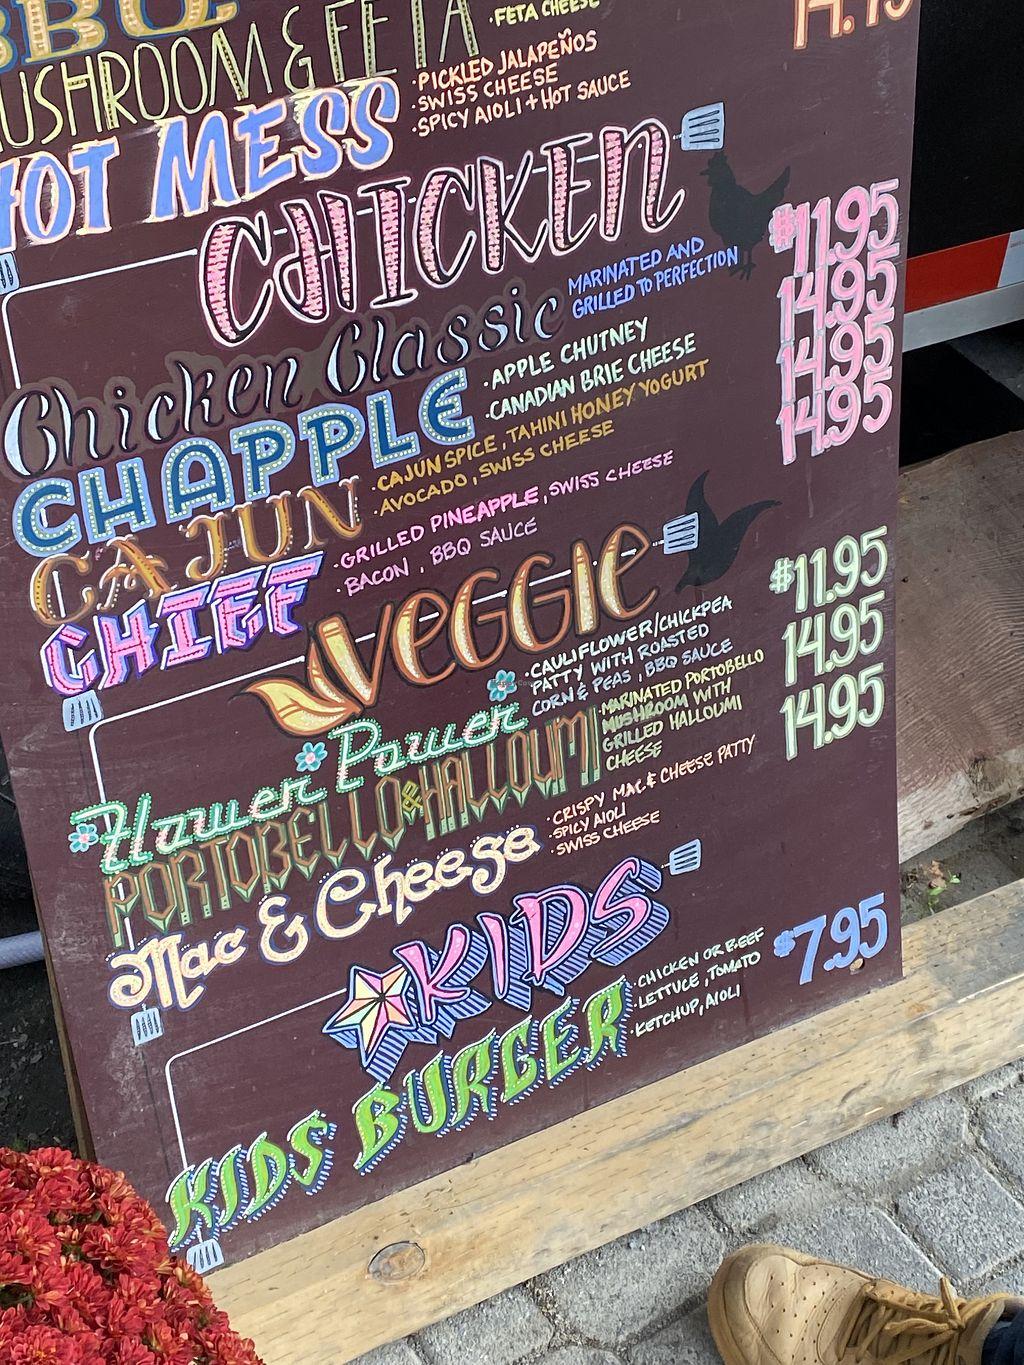 BBQ
MUSHROOM & FETA
·FETA CHEESE
14.95
HOT MESS
·PICKLED JALAPEÑOS
·SWISS CHEESE
·SPICY AIOLI + HOT SAUCE
CHICKEN
Chicken Classic
MARINATED AND
GRILLED TO PERFECTION
$11.95
CHAPPLE
·APPLE CHUTNEY
·CANADIAN BRIE CHEESE
14.95
CAJUN
·CAJUN SPICE, TAHINI HONEY YOGURT
·AVOCADO, SWISS CHEESE
14.95
CHIEF
·GRILLED PINEAPPLE, SWISS CHEESE
·BACON, BBQ SAUCE
14.95
VEGGIE
Flower Power
·CAULIFLOWER/CHICKPEA
PATTY WITH ROASTED
CORN & PEAS, BBQ SAUCE
$11.95
PORTOBELLO & HALLOUMI
·MARINATED PORTOBELLO
MUSHROOM WITH
GRILLED HALLOUMI
CHEESE
14.95
Mac & Cheese
·CRISPY MAC & CHEESE PATTY
·SPICY AIOLI
·SWISS CHEESE
14.95
KIDS
KIDS BURGER
·CHICKEN OR BEEF
·LETTUCE, TOMATO
·KETCHUP, AIOLI
$7.95